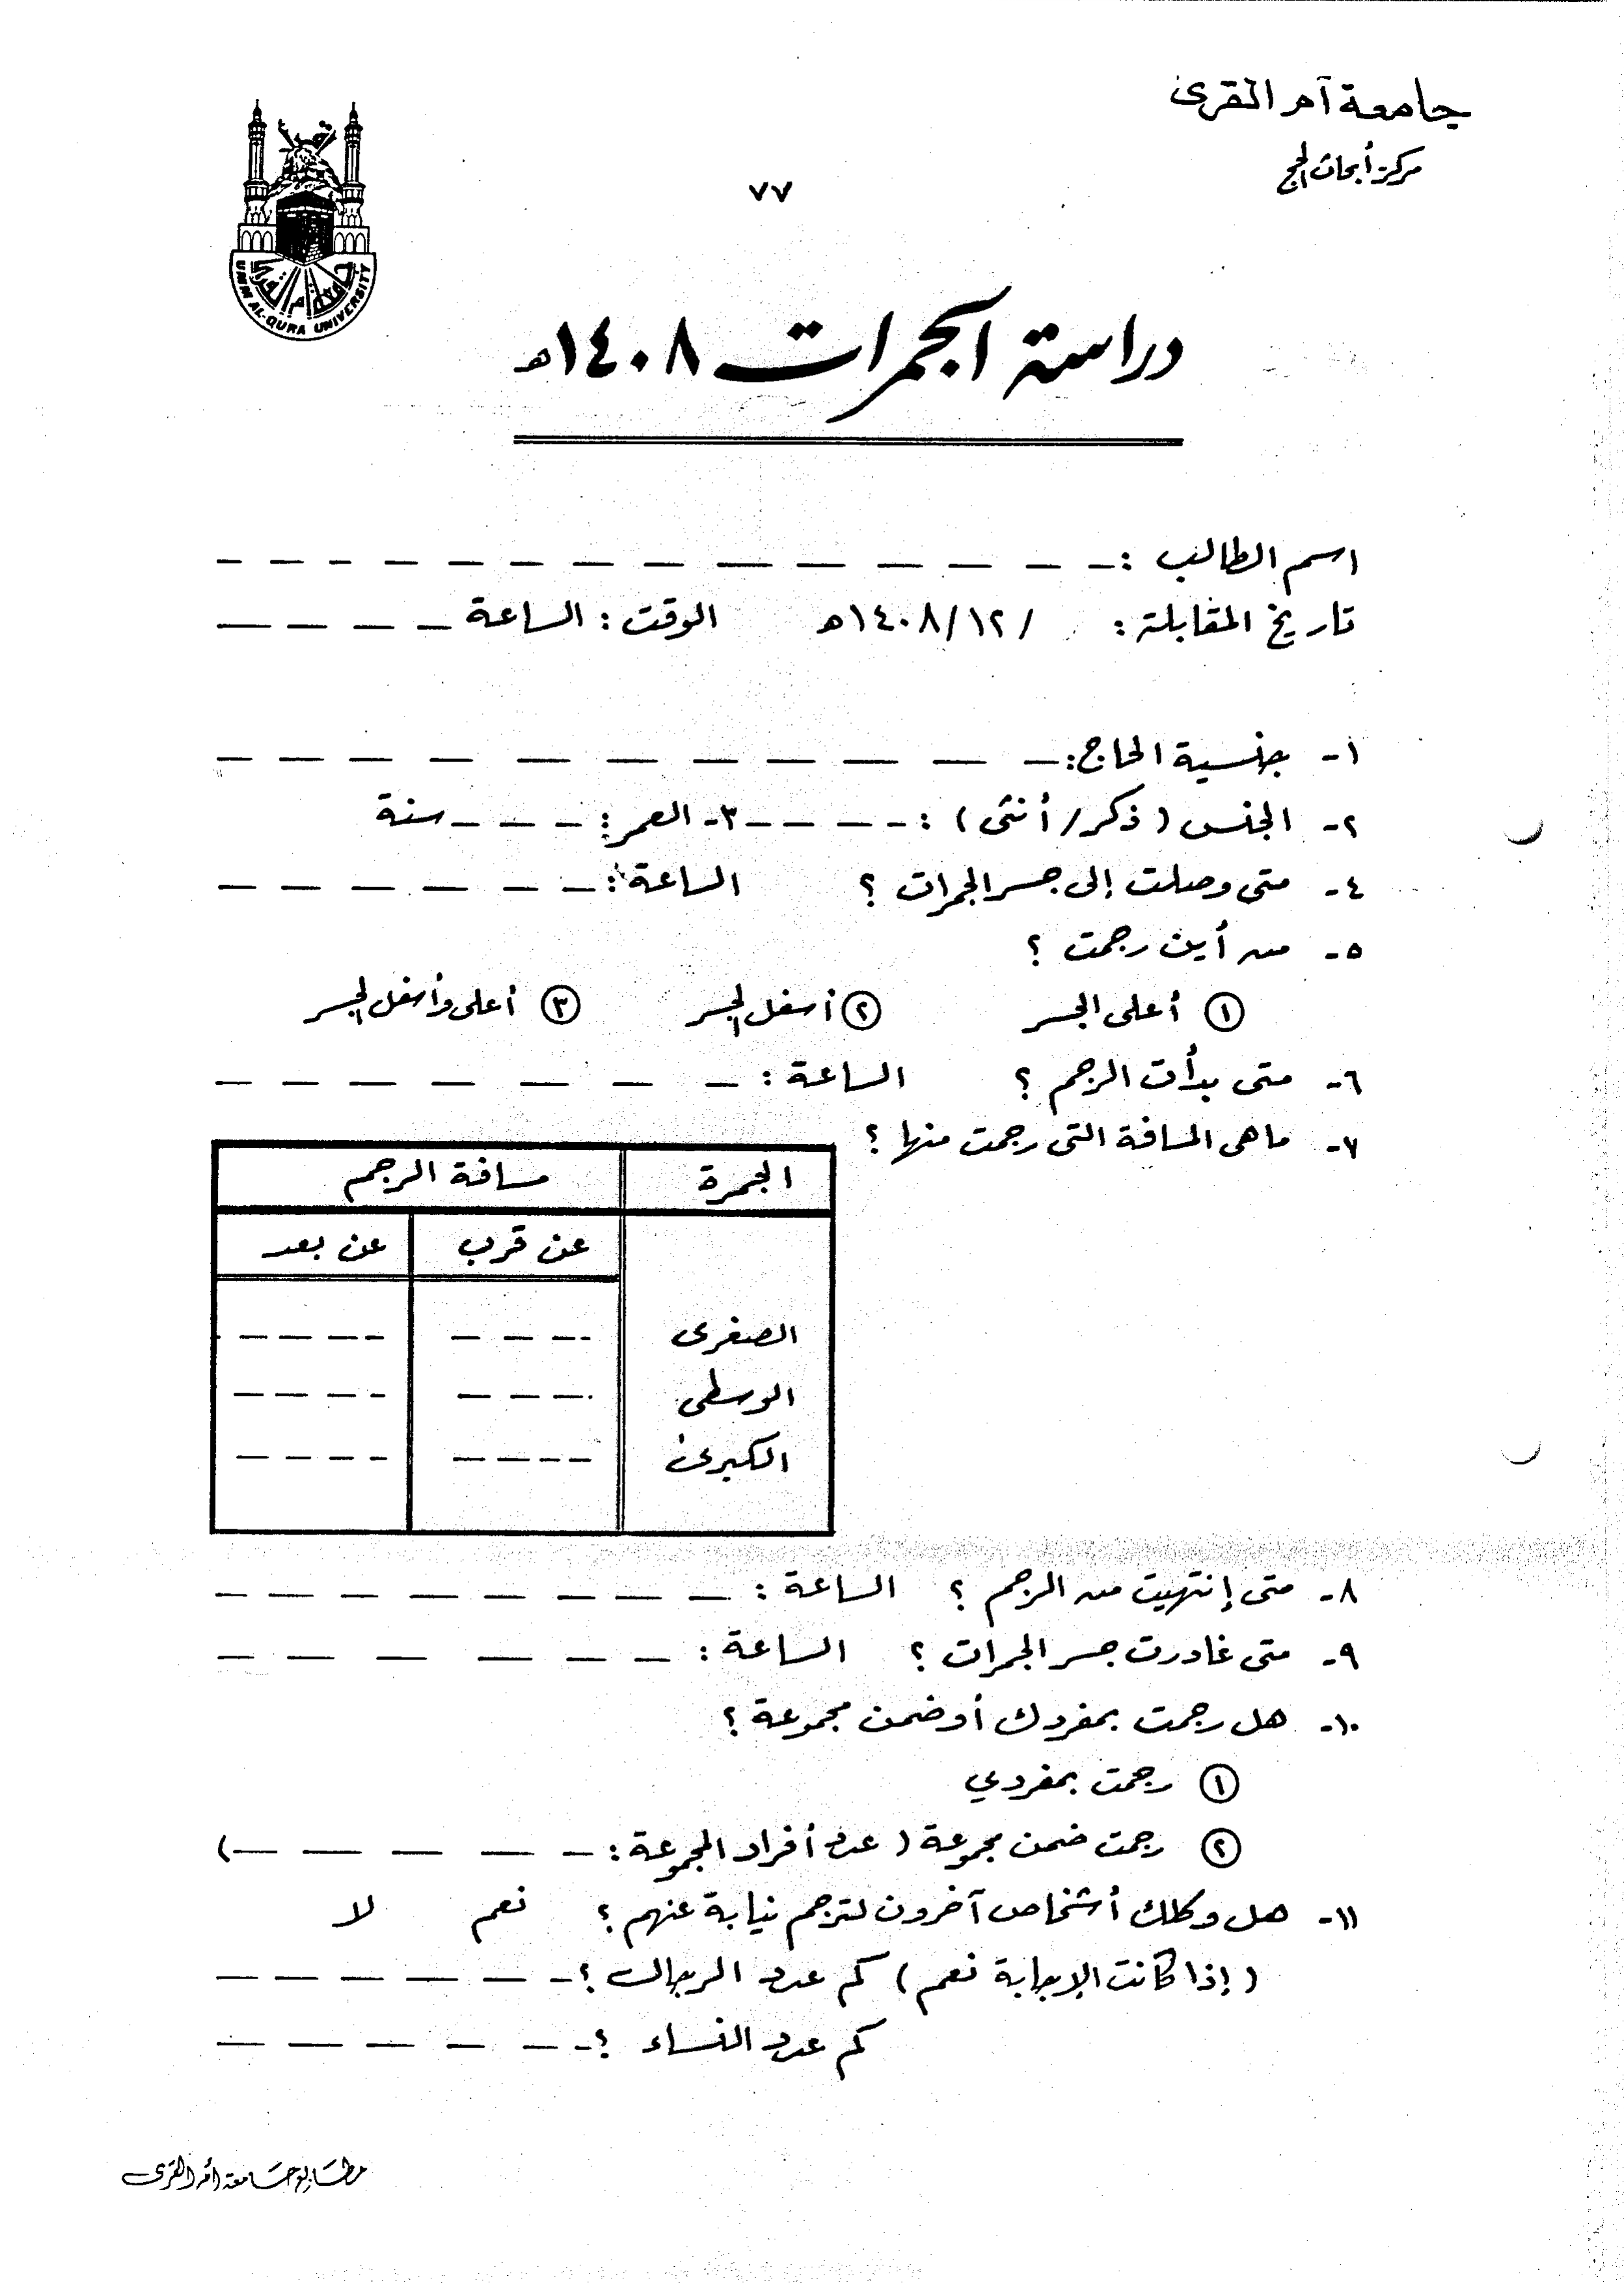 جامعة أم القرى
مركز أبحاث الحج
٧٧
UMM AL-QURA UNIVERSITY
دراسة الجمرات ١٤٠٨هـ
اسم الطالب : _ _ _ _ _ _ _ _ _ _ _ _ _ _
تاريخ المقابلة : / ١٢/ ١٤٠٨هـ الوقت : الساعة _ _ _ _
١- جنسية الحاج : _ _ _ _ _ _ _ _ _ _ _
٢- الجنس ( ذكر / أنثى ) : _ _ _ _ _ ٣- العمر : _ _ _ _ سنة
٤- متى وصلت إلى جسر الجمرات ؟ الساعة : _ _ _ _ _ _ _
٥- من أين رجمت ؟
① أعلى الجسر ② أسفل الجسر ③ أعلى وأسفل الجسر
٦- متى بدأت الرجم ؟ الساعة : _ _ _ _ _ _ _
٧- ماهى المسافة التى رجمت منها ؟
الجمرة مسافة الرجم
عن قرب عن بعد
الصغرى _ _ _ _ _ _ _ _
الوسطى _ _ _ _ _ _ _ _
الكبرى _ _ _ _ _ _ _ _
٨- متى إنتهيت من الرجم ؟ الساعة : _ _ _ _ _ _ _ _
٩- متى غادرت جسر الجمرات ؟ الساعة : _ _ _ _ _ _ _
١٠- هل رجمت بمفردك أو ضمن مجموعة ؟
① رجمت بمفردي
② رجمت ضمن مجموعة ( عدد أفراد المجموعة : _ _ _ _ _ )
١١- هل وكلك أشخاص آخرون لترجم نيابة عنهم ؟ نعم لا
( إذا كانت الإجابة نعم ) كم عدد الرجال ؟ _ _ _ _ _ _
كم عدد النساء ؟ _ _ _ _ _ _ _
مطابع جامعة أم القرى